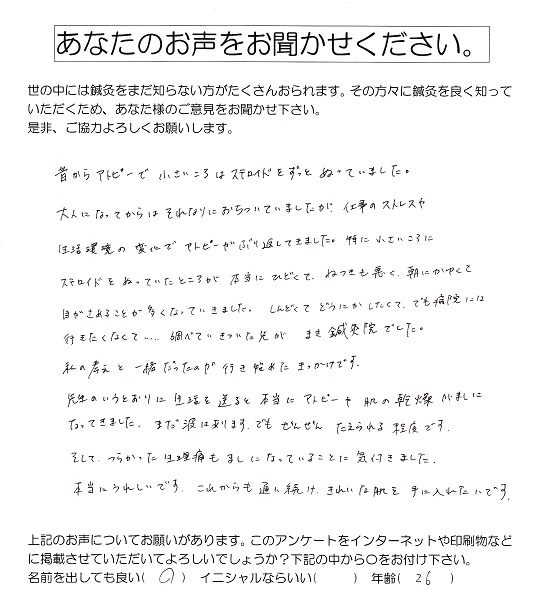 あなたのお声をお聞かせください。
世の中には鍼灸をまだ知らない方がたくさんおられます。その方々に鍼灸を良く知って
いただくため、あなた様のご意見をお聞かせ下さい。
是非、ご協力よろしくお願いします。
昔からアトピーで 小さいころはステロイドをずっと ぬっていました。
大人になってからは それなりにおちついていましたが、仕事のストレスや
生活環境の変化で アトピーがぶり返してきました。特に 小さいころに
ステロイドを ぬっていたところが 本当にひどくて、ねつきも悪く、朝にかゆくて
目がさめることが多くなっていきました。しんどくて どうにかしたくて、でも病院には
行きたくなくて…、調べていきついた先が まき鍼灸院でした。
私の考えと 一緒だったのが 行き始めた きっかけです。
先生のいうとおりに 生活を送ると 本当に アトピーや 肌の乾燥がましに
なってきました。まだ波はあります。でも ぜんぜん たえられる 程度です。
そして、つらかった 生理痛も ましになっていることに 気付きました。
本当にうれしいです。これからも 通い続け、きれいな肌を 手に入れたいです。
上記のお声についてお願いがあります。このアンケートをインターネットや印刷物など
に掲載させていただいてよろしいでしょうか？下記の中から〇をお付け下さい。
名前を出しても良い( 〇 ) イニシャルならいい( ) 年齢( 26 )